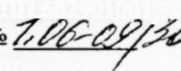 № 1.06-09/30